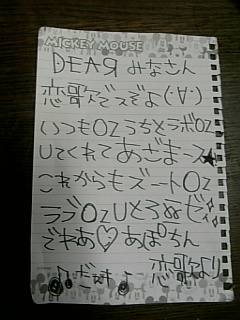 MICKEY MOUSE
DEAЯ みなさん
恋歌でスぞよ(・∀・)
いつもOzうちとラボOz
Uてくれてあざまース★
これからもズートOz
ラブOzUとろぬゼィ
でわあ♡あぽちん
♪だ ♪ 恋歌より